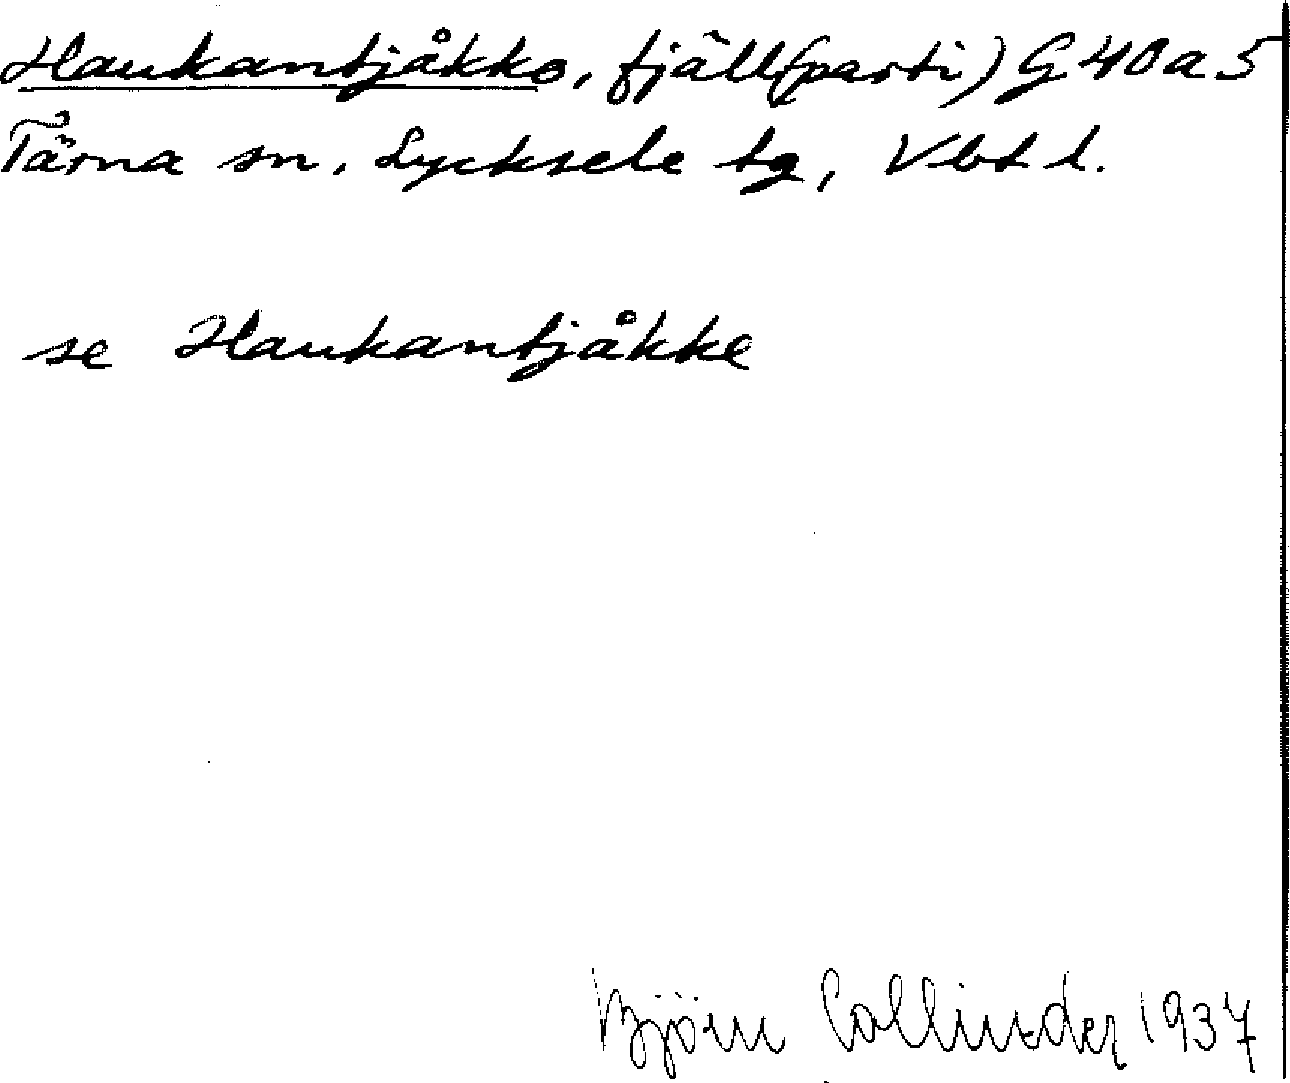 Haukantjåkko, fjäll(parti) G 40 a 5
Tärna sn. Lycksele tg, Vbt l.
se Haukantjåkke
Björn Collinder 1937